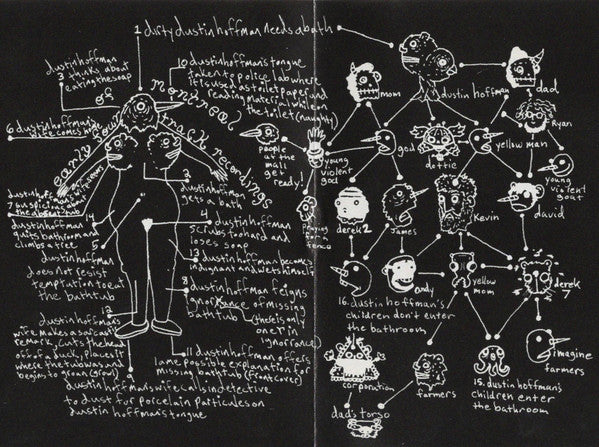 1 dirty dustin hoffman needs a bath
dustin hoffman
3 thinks about
eating the soap
10 dustin hoffman's tongue
taken to police lab where
it is used as toilet paper and
reading material while on
the toilet (naughty)
of montreal
early four track recordings
6 dustin hoffman's
wife comes home
7 suspicious about
the absent tub
2
dustin hoffman
gets a bath
4 dustin hoffman
scrubs too hard and
loses soap
14
dustin hoffman
quits bathroom and
climbs a tree
5
dustin hoffman
does not resist
temptation to eat
the bathtub
13
dustin hoffman becomes
indignant and wets himself
8
dustin hoffman feigns
ignorance of missing
bathtub (there is only
one r in
ignorance)
12
dustin hoffman's
wife makes a sarcastic
remark, cuts the head
off of a duck, places it
where the tub was and
begins to groan
11 dustin hoffman offers
lame possible explanation for
missing bathtub (front cover)
dustin hoffman's wife calls in detective
to dust for porcelain particules on
dustin hoffman's tongue
mom
dustin hoffman
dad
Ryan
people
at the
mall
get
ready!
young
violent
god
god
dottie
yellow man
young
violent
goat
praying
for a
fence
derek 2
James
Kevin
david
andy
yellow
mom
derek
7
16. dustin hoffman's
children don't enter
the bathroom
corporation
farmers
dad's torso
15. dustin hoffman's
children enter
the bathroom
imagine
farmers